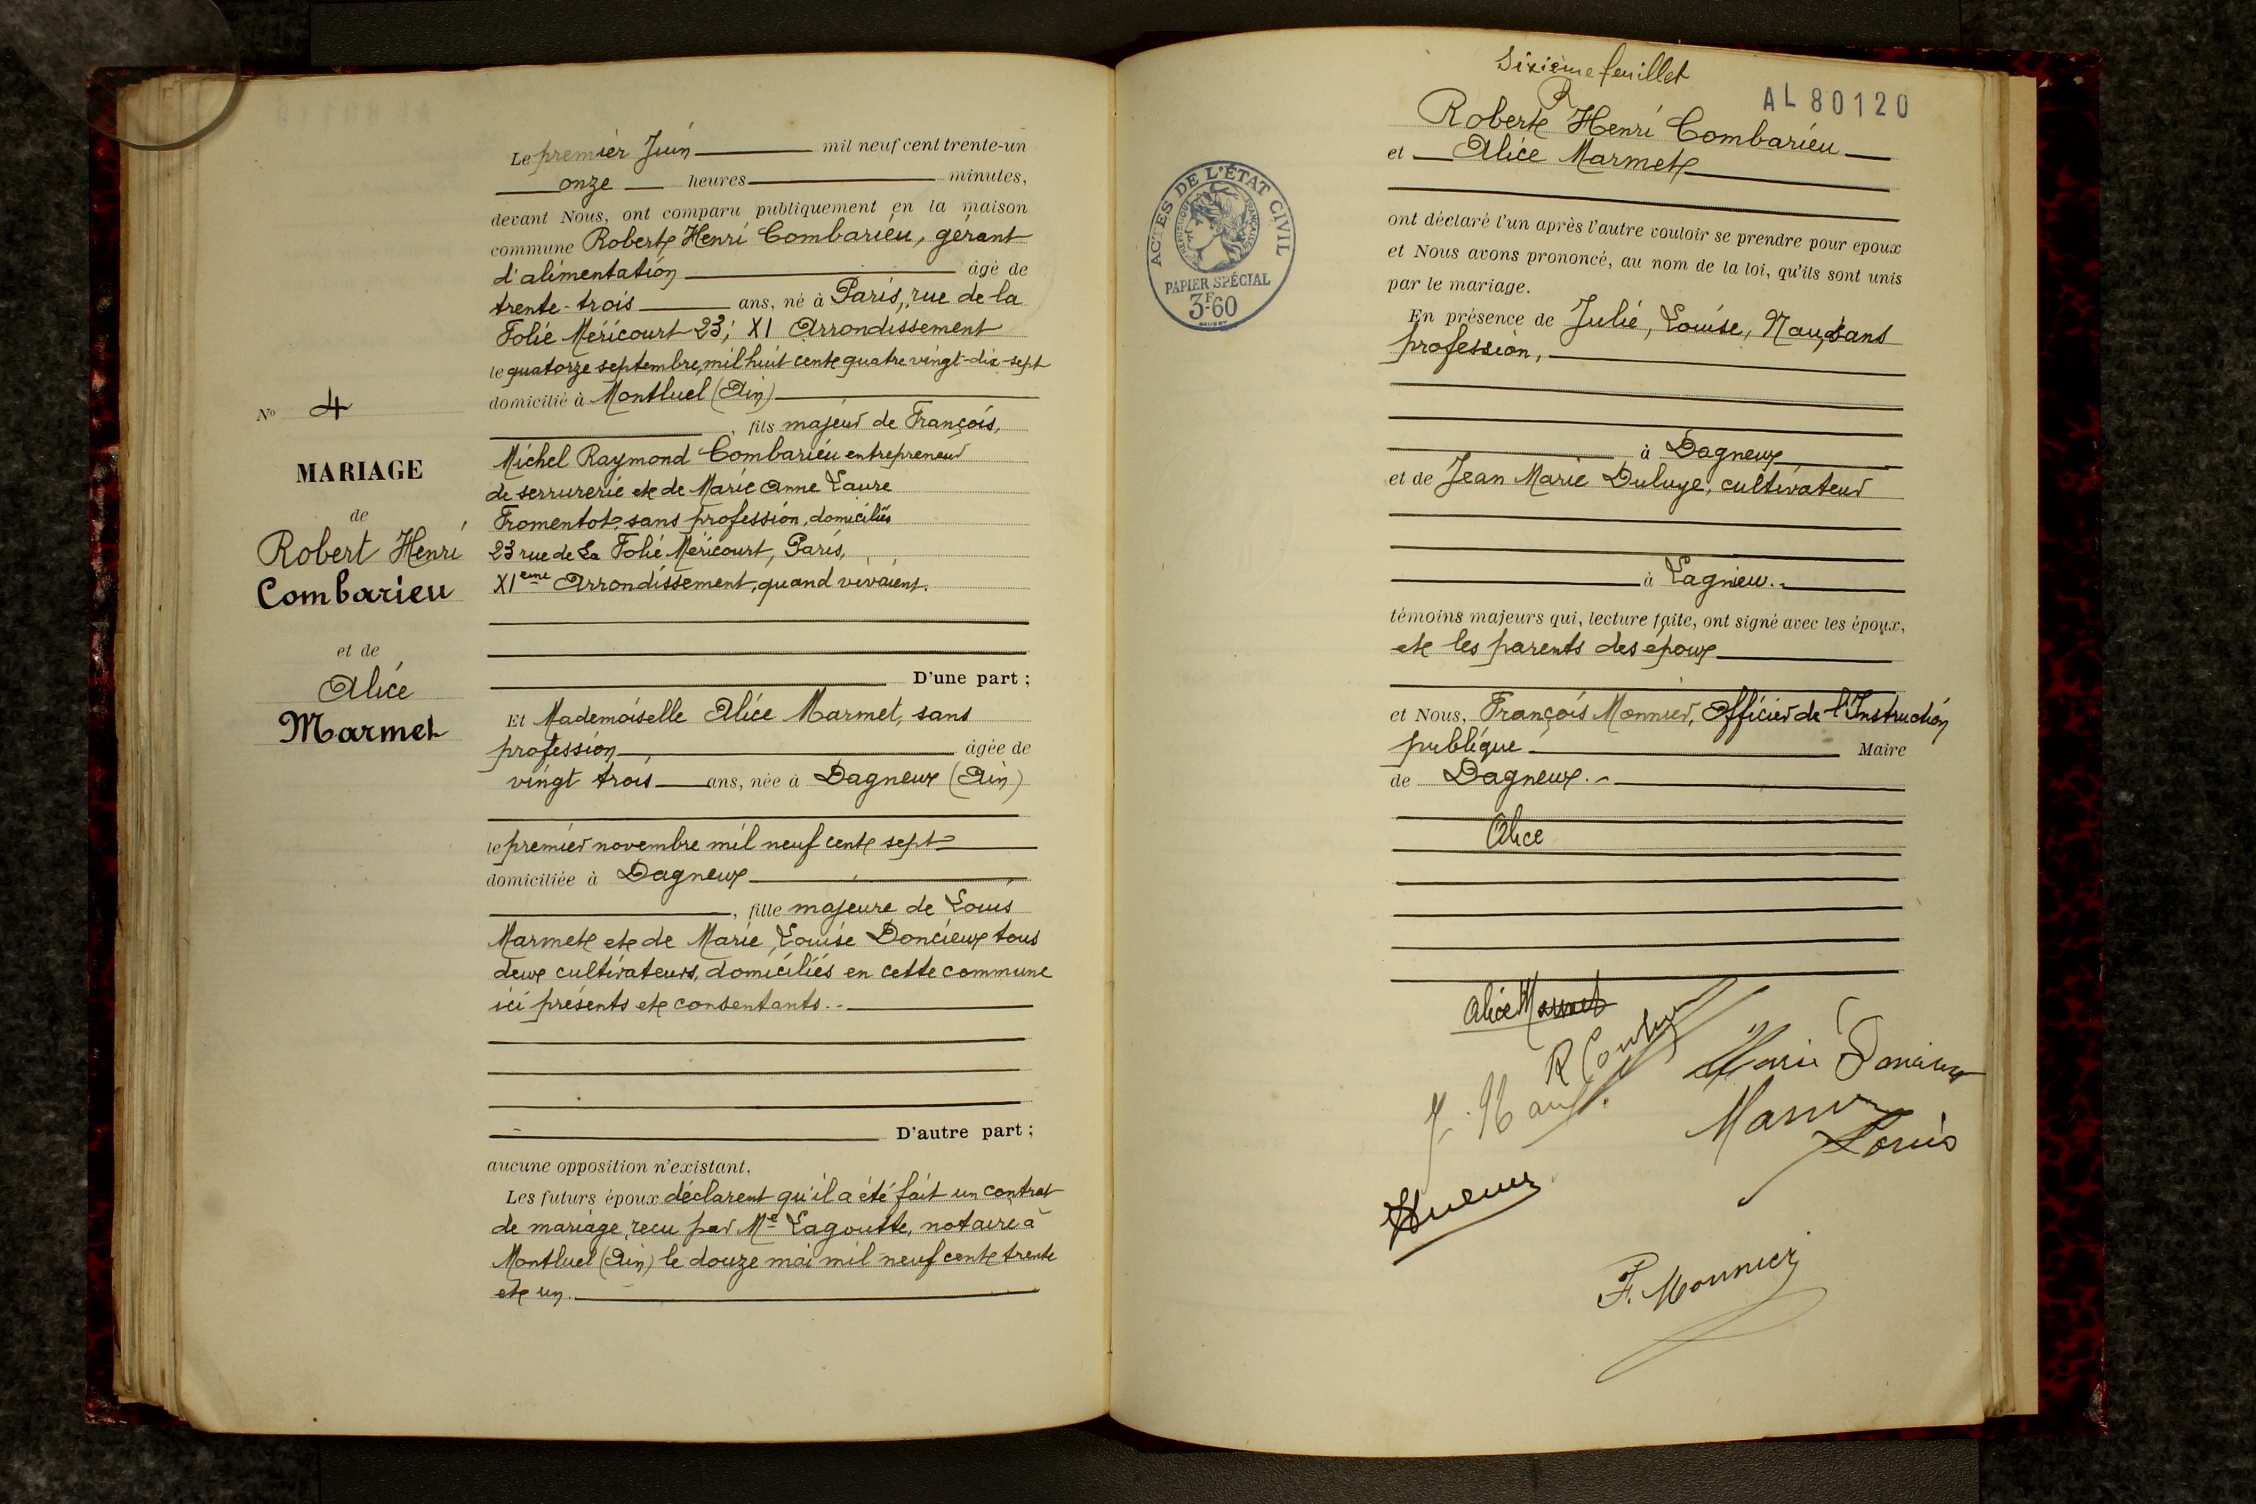 Le premier Juin mil neuf cent trente-un
onze heures minutes,
devant Nous, ont comparu publiquement en la maison
commune Robert Henri Combarieu, gérant
d'alimentation âgé de
trente-trois ans, né à Paris, rue de la
Folie Méricourt 23; XI Arrondissement
le quatorze septembre, mil huit cent quatre vingt-dix-sept
domicilié à Montluel (Ain)
, fils majeur de François,
Michel Raymond Combarieu entrepreneur
de serrurerie et de Marie Anne Laure
Fromentot, sans profession, domiciliés
23 rue de La Folie Méricourt, Paris,
XIeme Arrondissement, quand vivaient.
D'une part ;
No 4
MARIAGE
de
Robert Henri
Combarieu
et de
Alice
Marmet
Et Mademoiselle Alice Marmet, sans
profession, âgée de
vingt trois ans, née à Dagneux (Ain)
le premier novembre mil neuf cent sept
domiciliée à Dagneux
, fille majeure de Louis
Marmet et de Marie, Louise Doncieux tous
deux cultivateurs, domiciliés en cette commune
ici présents et consentants.
D'autre part ;
aucune opposition n'existant.
Les futurs époux déclarent qu'il a été fait un contrat
de mariage, recu par Me Lagoutte, notaire à
Montluel (Ain) le douze mai mil neuf cent trente
et un.
Sixième feuillet
R
AL 80120
Robert Henri Combarieu
et Alice Marmet
ACTES DE L'ÉTAT CIVIL
RÉPUBLIQUE FRANÇAISE
PAPIER SPÉCIAL
3F60
ont déclaré l'un après l'autre vouloir se prendre pour epoux
et Nous avons prononcé, au nom de la loi, qu'ils sont unis
par le mariage.
En présence de Julie, Louise, Naud, sans
profession,
à Dagneux
et de Jean Marie Duluye, cultivateur
à Lagnieu.
témoins majeurs qui, lecture faite, ont signé avec les époux,
et les parents des époux
et Nous, François Monnier, Officier de l'Instruction
publique Maire
de Dagneux.
Alice
Alice Marmet
Marie
Louis
F. Monnier